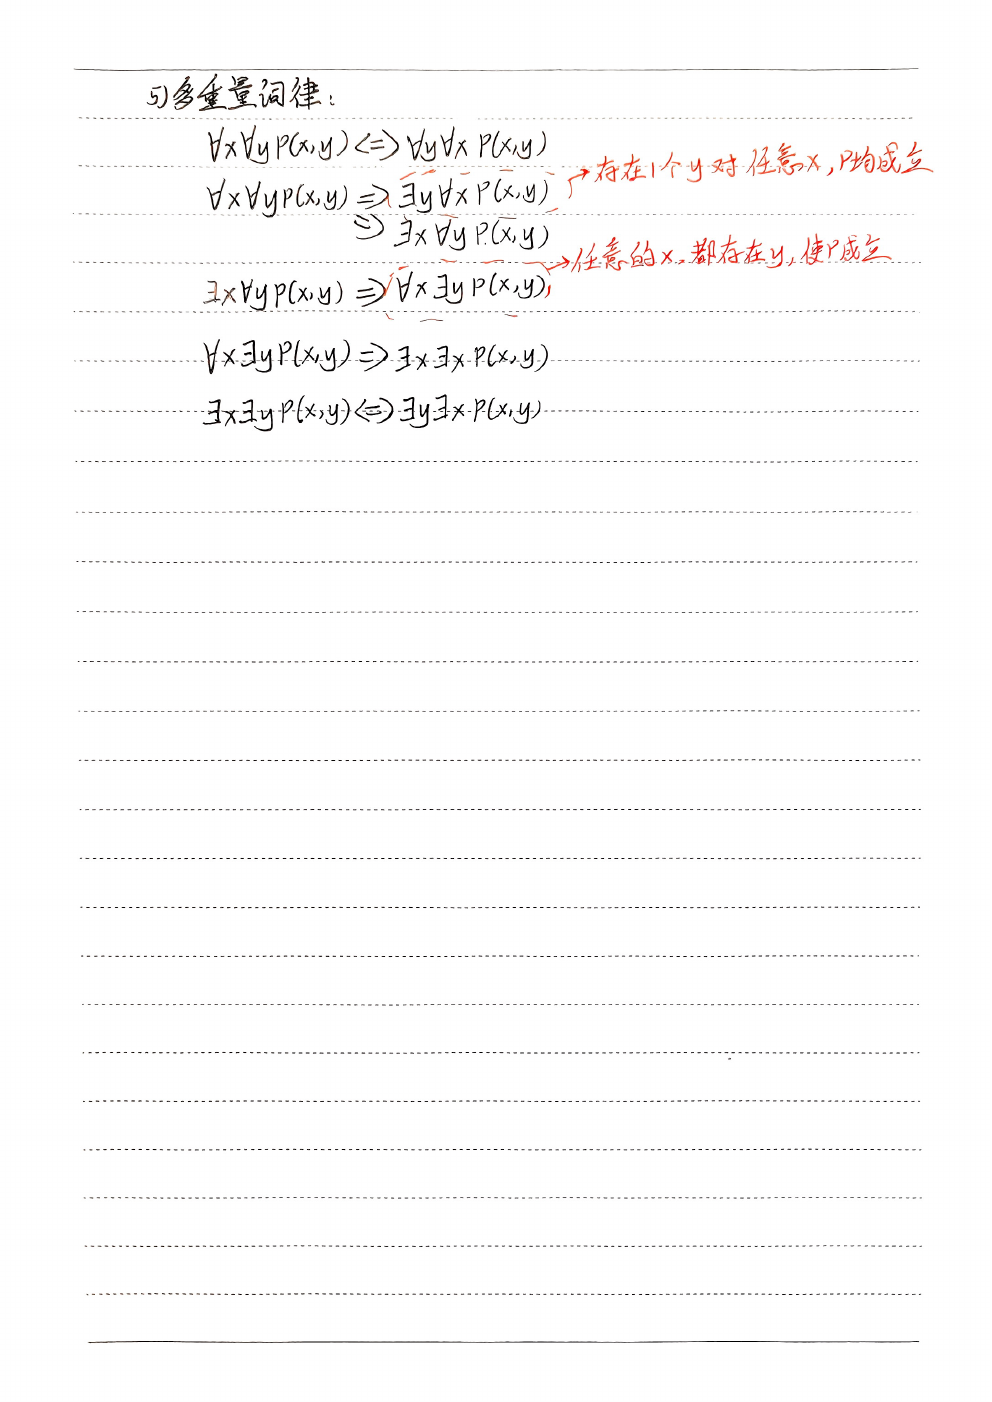 5)多重量词律:
∀x∀yP(x,y)<=>∀y∀xP(x,y)
∀x∀yP(x,y)=>∃y∀xP(x,y)→存在1个y对任意x,P均成立
=>∃x∀yP(x,y)
∃x∀yP(x,y)=>∀x∃yP(x,y)→任意的x,都存在y,使P成立
∀x∃yP(x,y)=>∃x∃xP(x,y)
∃x∃yP(x,y)<=>∃y∃xP(x,y)